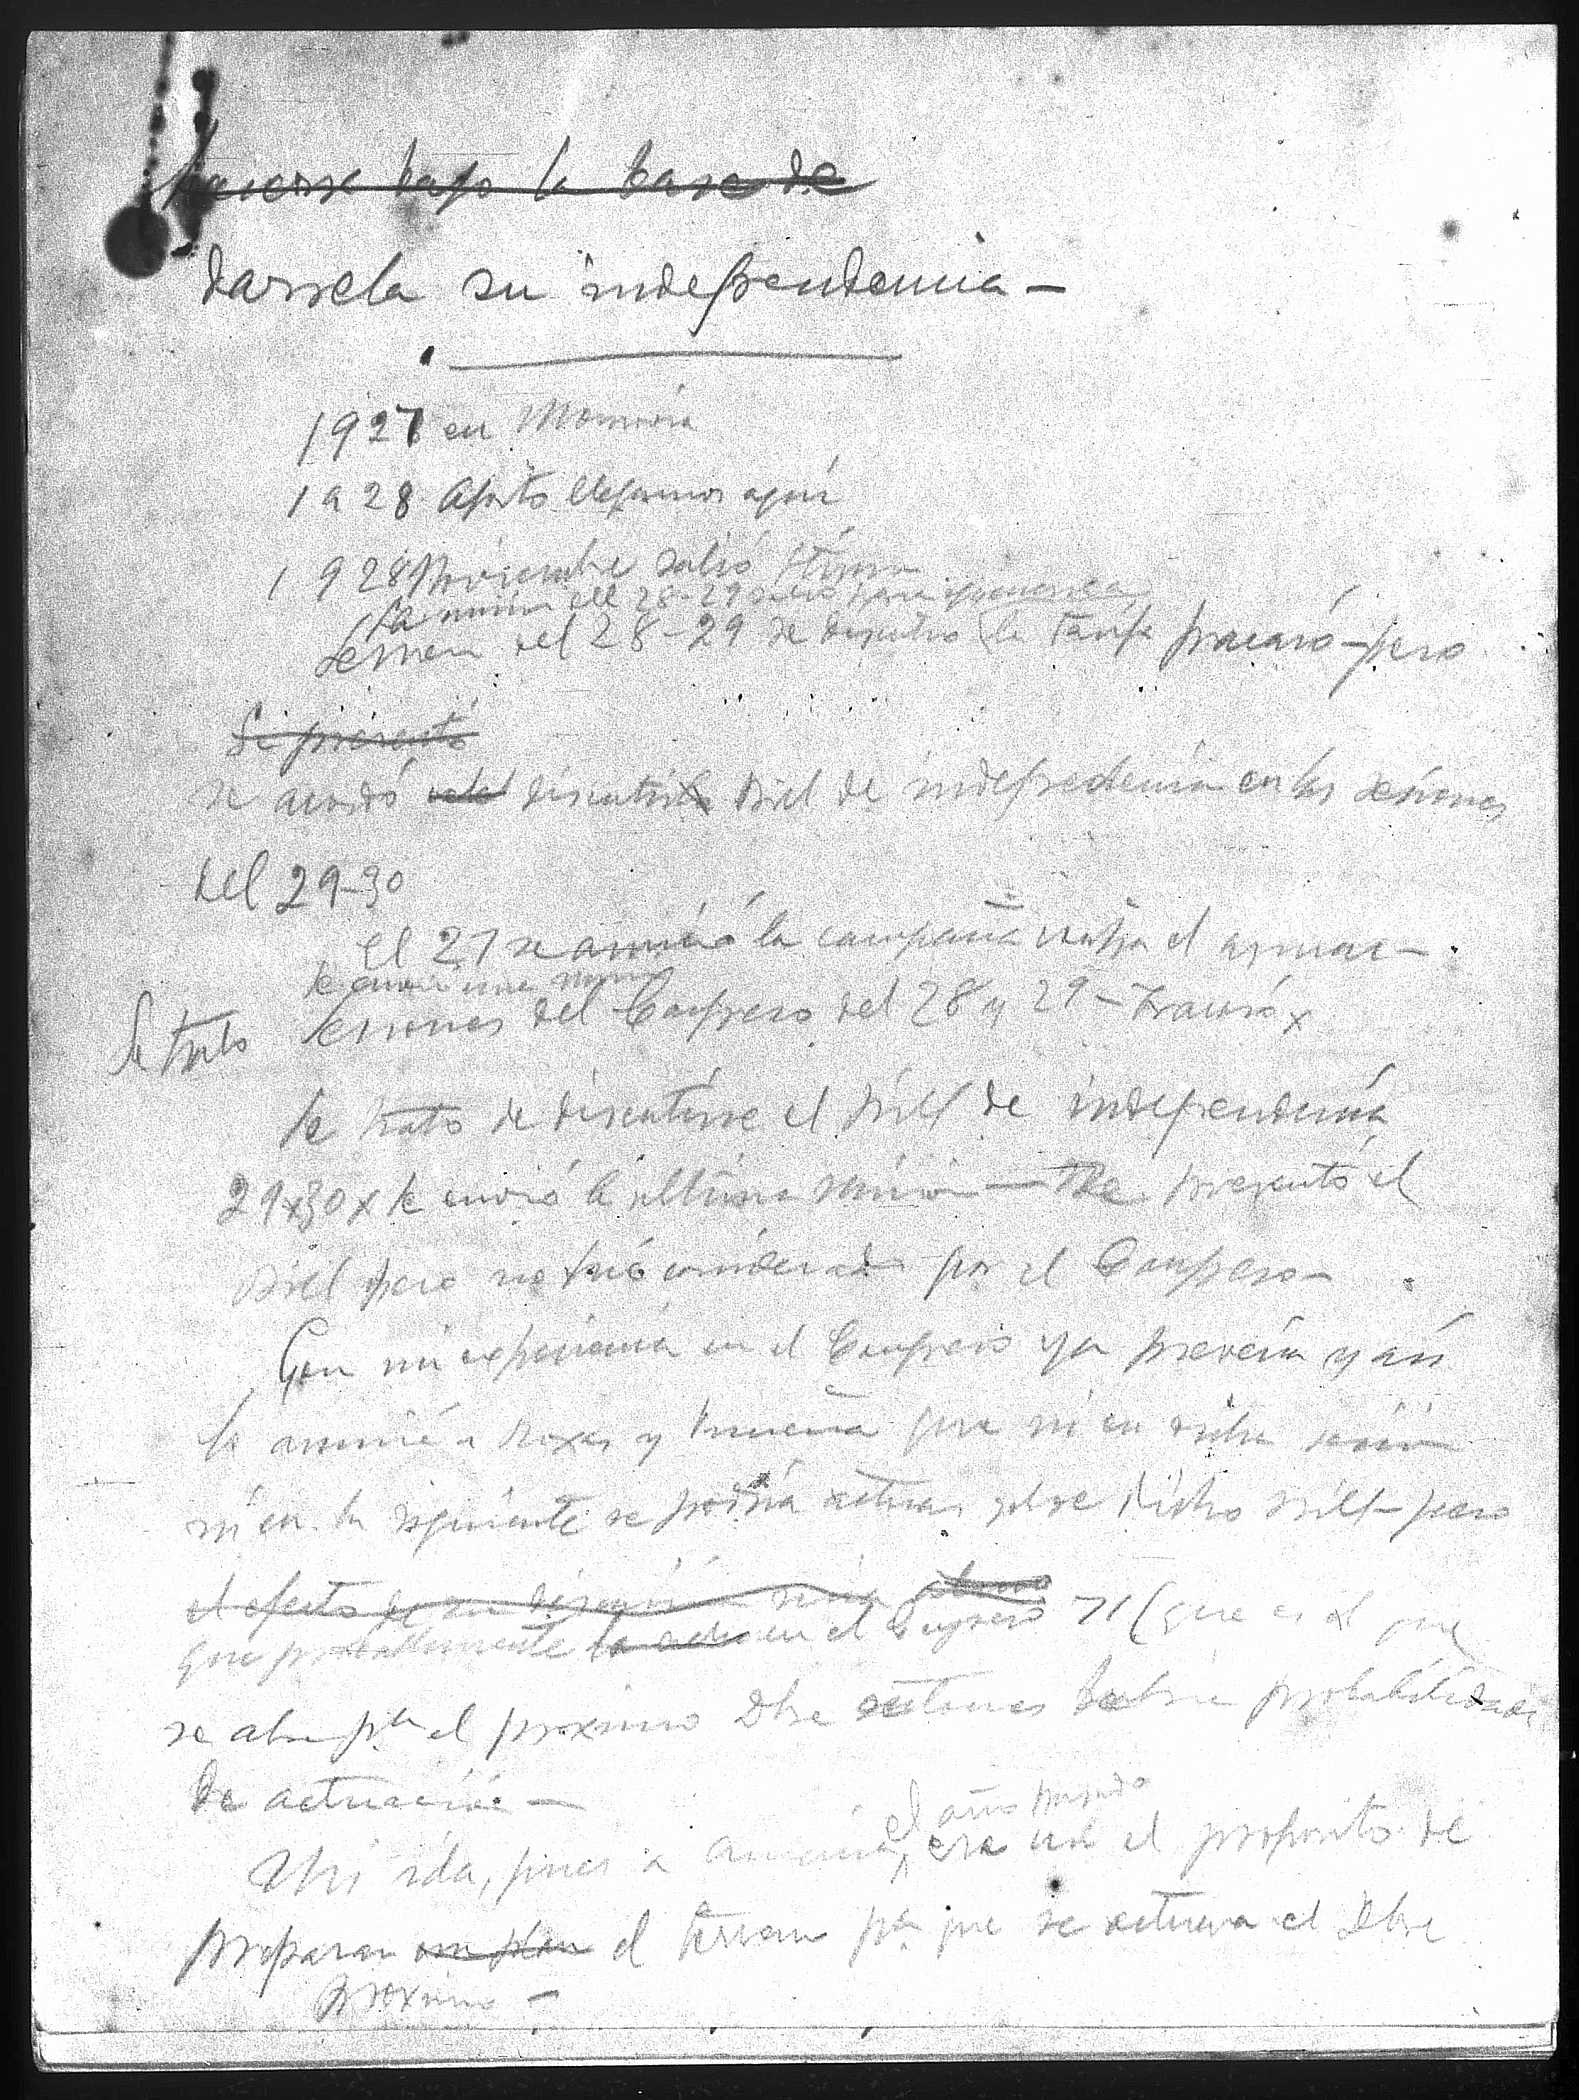 hacerse bajo la base de
darsela su independencia —
1927 en Monrovia
1928 Agosto llegamos aqui
1928 Noviembre salió
La misión del 28-29 salió para
sesion del 28-29 se discutio la tarifa fracasó — pero
Se presentó
se acordó discutir bill de independencia en las sesiones
del 29-30
El 27 se anunció la campaña contra el
Se envio una mision
Se trato sesiones del Congreso del 28 y 29 — Fracasó x
Se trato de discutirse el bill de independencia
29x30x se envió la ultima mision — Se presentó el
bill pero no fué considerado por el Congreso —
Con mi experiencia en el Congreso ya preveia y asi
lo anuncié a Roxas y Osmeña que ni en dicha sesión
ni en la siguiente se podria actuar sobre dicho bill — pero
el efecto de su discusión seria
que probablemente en el Congreso 71 (que es el que
se abre pa el proximo Dbre habria probabilidades
de actuación —
el año pasado
Mi ida, pues a America, era con el proposito de
preparar un plan el terreno pa que se actuara el Dbre
proximo —